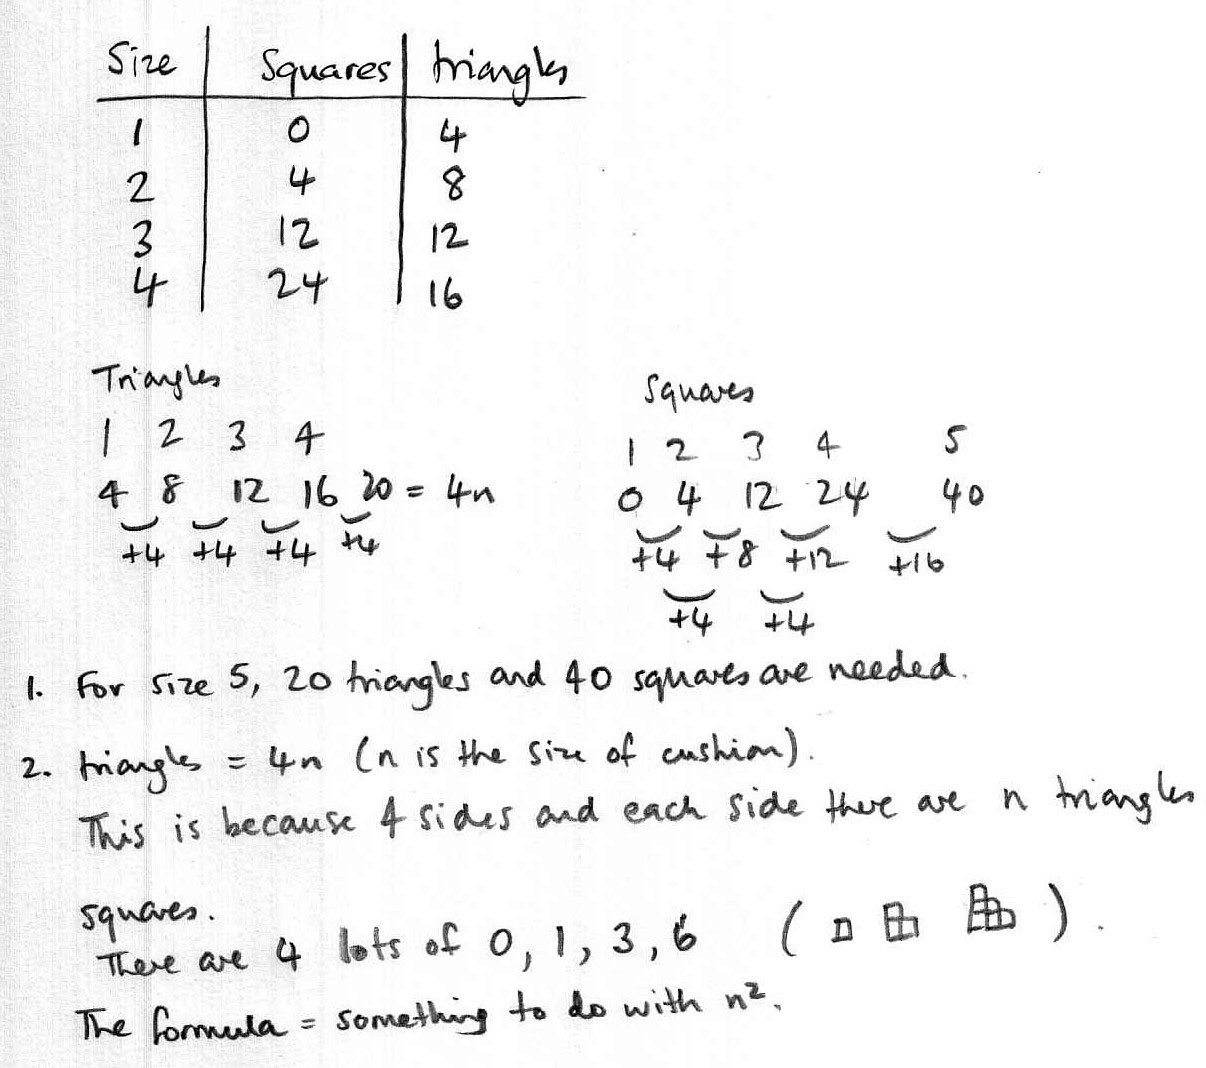 Size Squares triangles
1 0 4
2 4 8
3 12 12
4 24 16
Triangles
1 2 3 4
4 8 12 16 20 = 4n
+4 +4 +4 +4
Squares
1 2 3 4 5
0 4 12 24 40
+4 +8 +12 +16
+4 +4
1. For size 5, 20 triangles and 40 squares are needed.
2. triangles = 4n (n is the size of cushion).
This is because 4 sides and each side there are n triangles
squares.
There are 4 lots of 0, 1, 3, 6 ( ).
The formula = something to do with n².